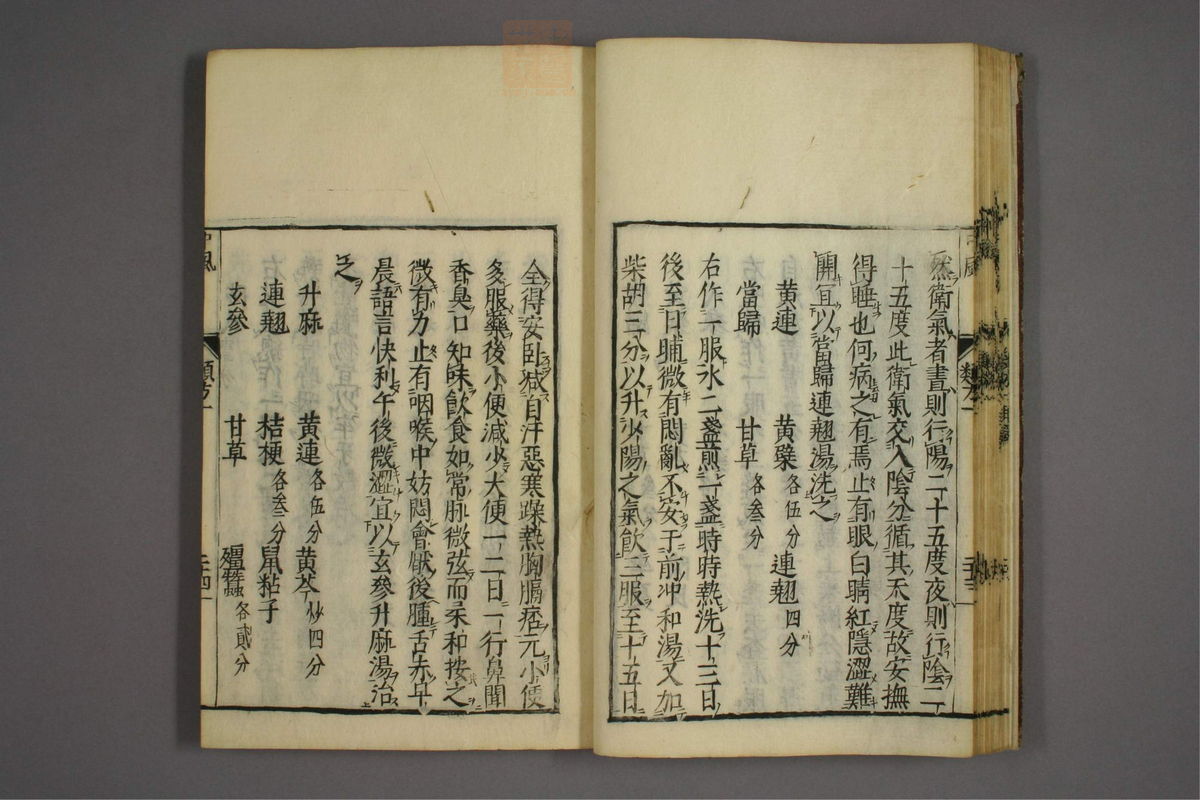 然衛氣者晝則行陽二十五度夜則行陰二
十五度此衛氣交入陰分循其天度故安撫
得睡也何病之有焉止有眼白睛紅隱澀難
開宜以當歸連翹湯洗之
黄連 黄檗各伍分 連翹四分
當歸 甘草各叁分
右作一服水二盞煎一盞時時熱洗十三日
後至日晡微有悶亂不安于前冲和湯又加
柴胡三分以升少陽之氣飲三服至十五日
全得安卧减自汗惡寒躁熱胸膈痞元小便
多服藥後小便減少大便一二日一行鼻聞
香臭口知味飲食如常脉微弦而柔和按之
微有力止有咽喉中妨悶會厭後腫舌赤早
晨語言快利午後微澀宜以玄參升麻湯治
之
升麻 黄連各伍分 黄芩炒四分
連翹 桔梗各叁分 鼠粘子
玄參 甘草 殭蠶各貳分